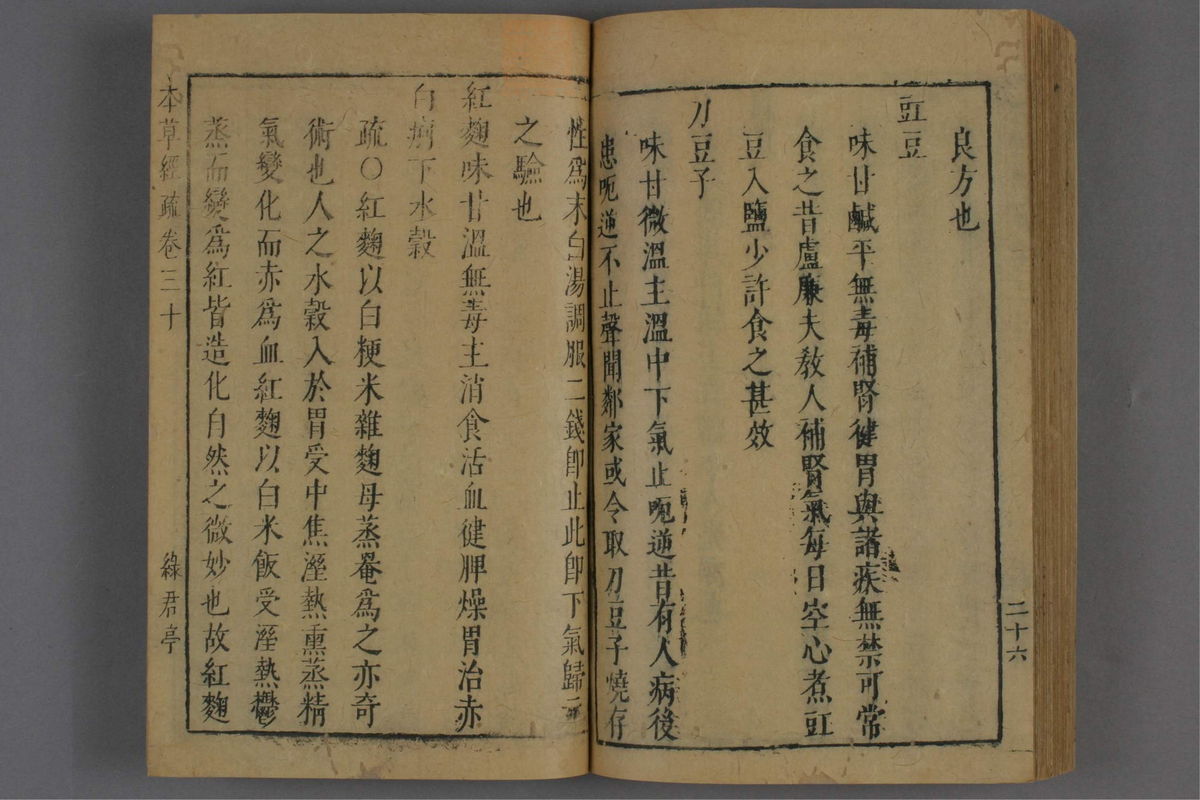 良方也
豇豆
味甘鹹平無毒補腎健胃與諸疾無禁可常
食之昔盧廉夫教人補腎氣每日空心煮豇
豆入鹽少許食之甚效
刀豆子
味甘微溫主溫中下氣止呃逆昔有人病後
患呃逆不止聲聞鄰家或令取刀豆子燒存
二十六
性爲末白湯調服二錢卽止此卽下氣歸
之驗也
紅麴味甘溫無毒主消食活血健脾燥胃治赤
白痢下水穀
疏〇紅麴以白粳米雜麴母蒸罨爲之亦奇
術也人之水穀入於胃受中焦溼熱熏蒸精
氣變化而赤爲血紅麴以白米飯受溼熱鬱
蒸而變爲紅皆造化自然之微妙也故紅麴
本草經疏卷三十
綠君亭